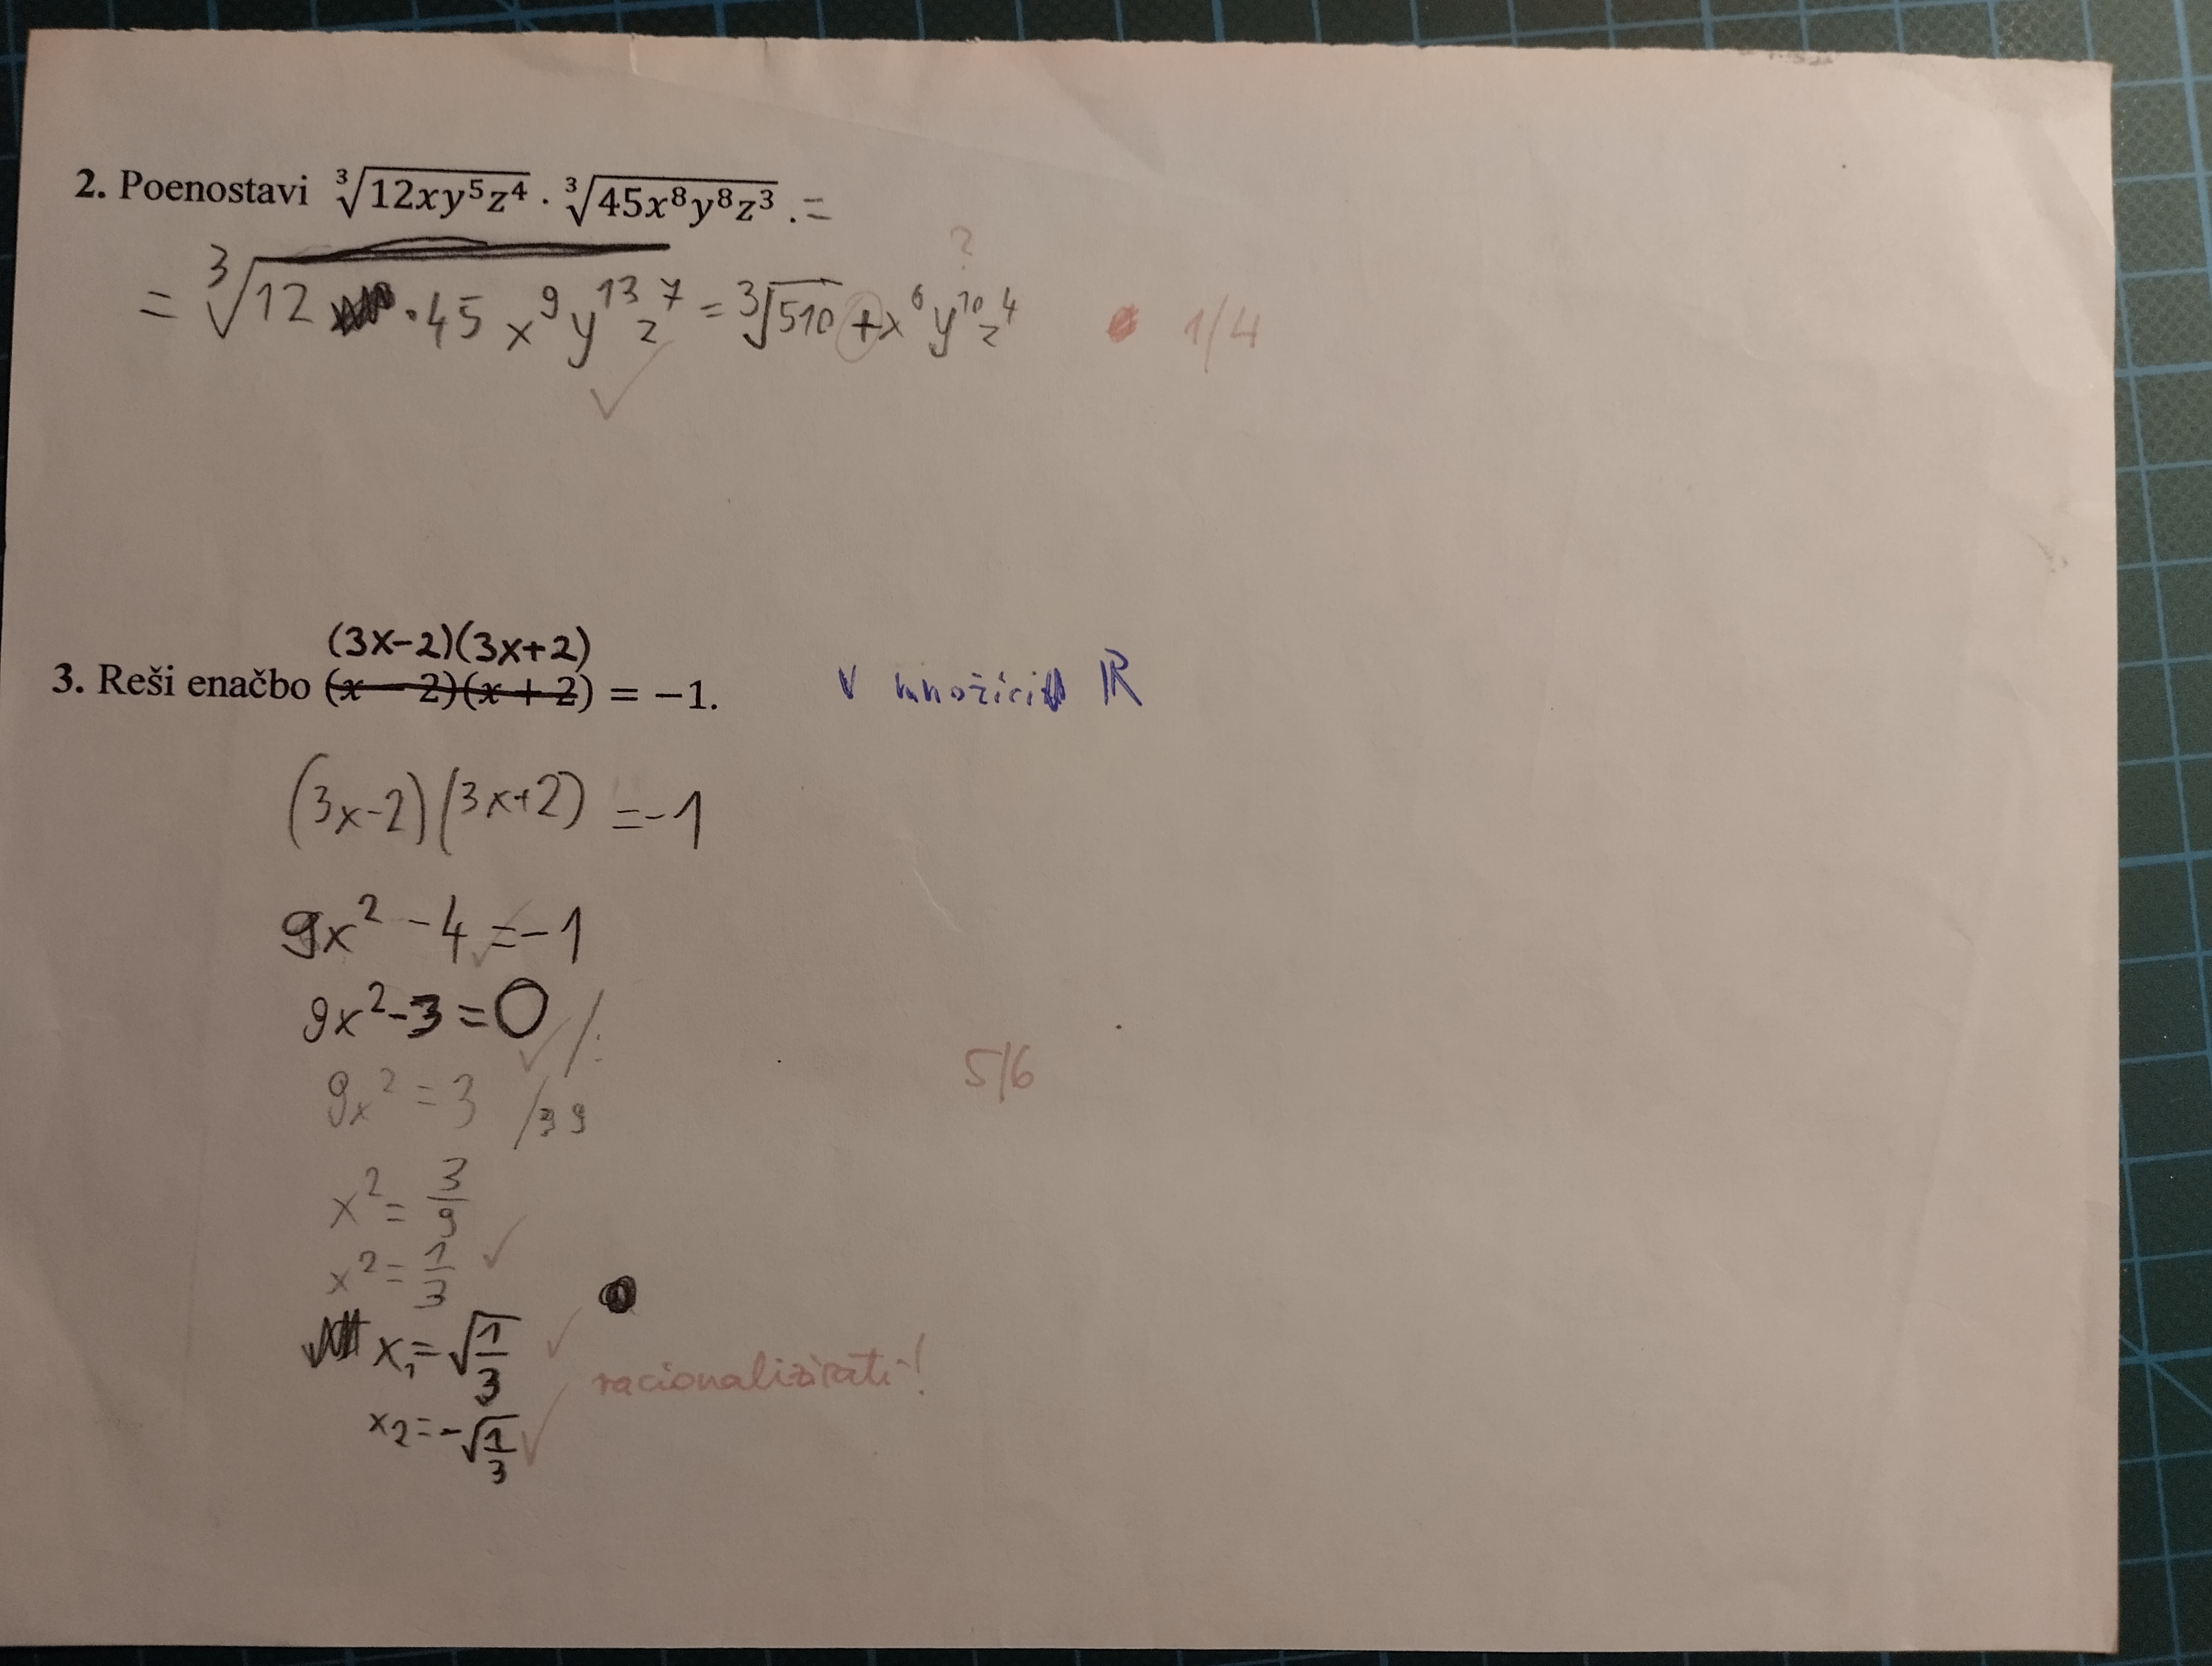 2. Poenostavi ∛(12xy⁵z⁴) · ∛(45x⁸y⁸z³) . =
?
= ∛(12 · 45 x⁹ y¹³ z⁷) = ∛510 + x⁶ y¹⁰ z⁴ 1/4
(3x-2)(3x+2)
3. Reši enačbo (x − 2)(x + 2) = −1. v množici ℝ
(3x-2)(3x+2) = -1
9x² - 4 = -1
9x² - 3 = 0 /:
9x² = 3 /39
x² = 3/9
x² = 1/3
x₁ = √(1/3)
x₂ = -√(1/3)
racionalizirati!
5/6